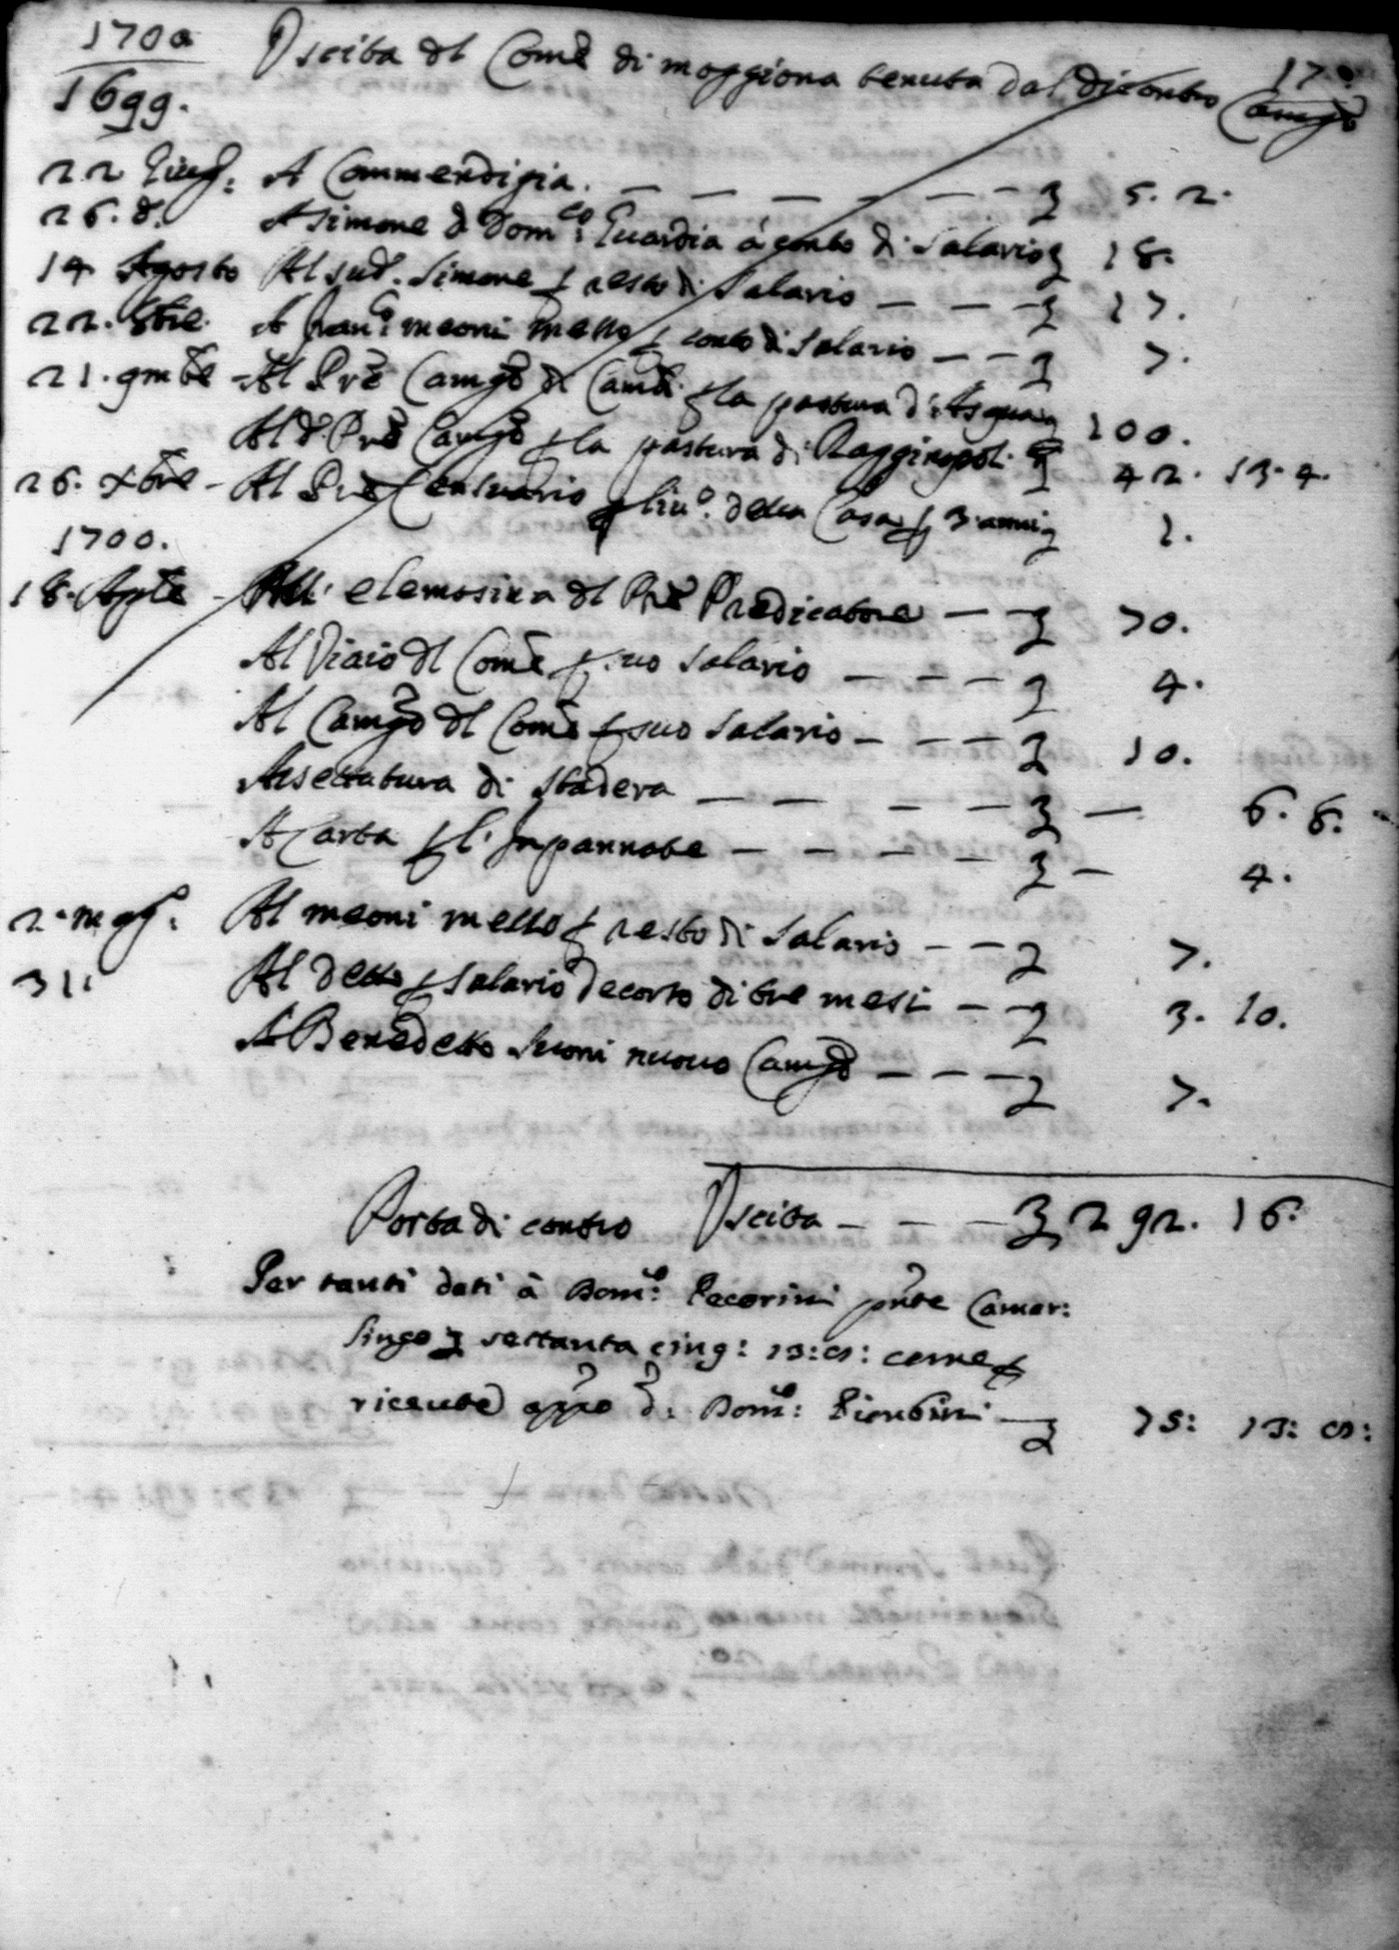 1700 Uscita dl Comē di moggiona tenuta dal dicontro Camgō 170
1699.
22 Giug: A Commendigia. — — — — — — — 5. 2.
26. d. A Simone d Domco: Guardia à conto di Salario 18.
14 Agosto Al sud. Simone p resto di Salario — — — 17.
22. 8bre. A Franc: meoni messo p conto di Salario — — 7.
21. 9mbre - Al Prē Camgō di Camli. p la pastura d'Asqua 100.
Al d. Prē Camgō p la pastura di Raggiopol. 42. 13. 4.
26. Xbre - Al Prē Centuario p liv.o della Casa p 3 anni 1.
1700.
18. Aple - All' elemosina dl Prē Predicatore — — 70.
Al Viaio dl Comē p suo Salario — — — 4.
Al Camgo dl Comē p suo Salario — — — 10.
Assettatura di Stadera — — — — — — 6. 8.
A Carta p l' Inpannate — — — — — — 4.
2. magg. Al meoni messo p resto di Salario — — 7.
31. Al detto p Salario decorso di tre mesi — — 3. 10.
A Benedetto Suoni nuovo Camgō — — — 7.
Porta di contro Uscita — — — 292. 16.
Per tanti dati à Domco: Pecorini pnte Camar:
lingo settanta cinq: 13: 8: come p
riceute appo d. Domco: Piontini — 75: 13: 8: